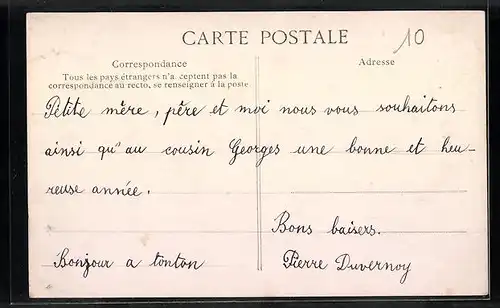 CARTE POSTALE
10
Correspondance
Adresse
Tous les pays étrangers n'acceptent pas la
correspondance au recto, se renseigner à la poste
Petite mère, père et moi nous vous souhaitons
ainsi qu'au cousin Georges une bonne et heu-
reuse année.
Bons baisers.
Bonjour a tonton
Pierre Duvernoy